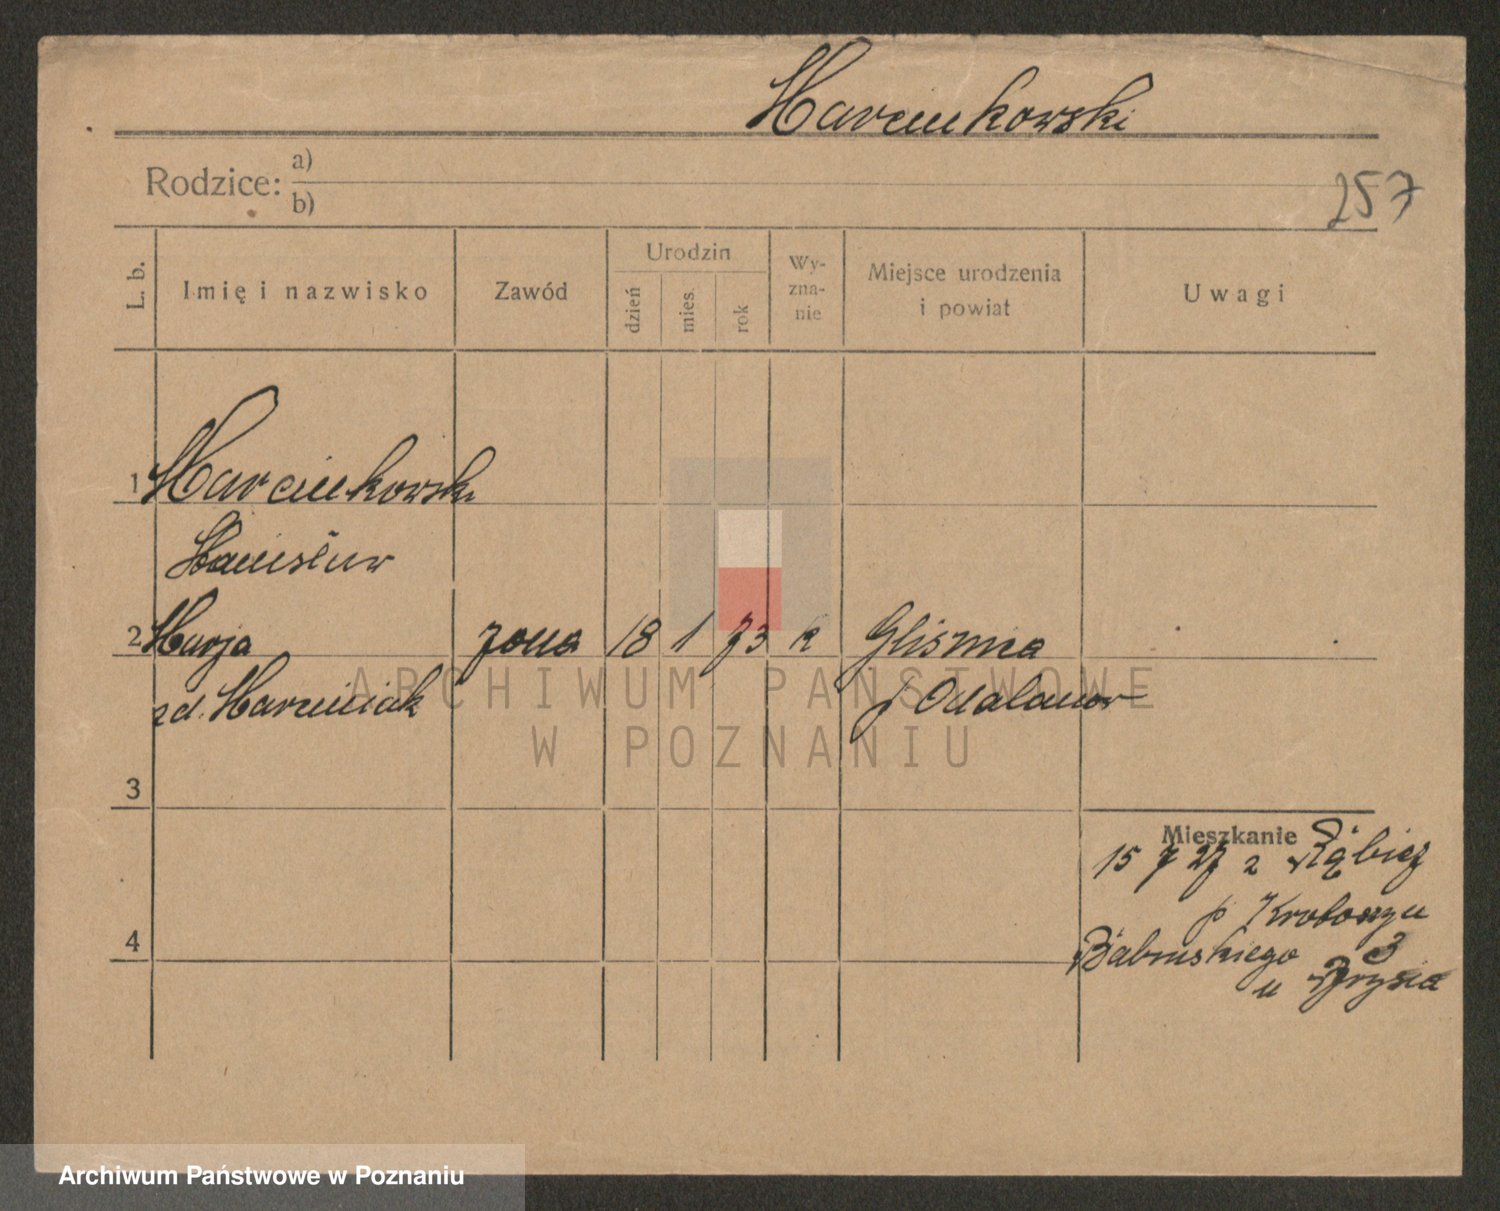 Marcinkowski
Rodzice: a)
b)
257
L. b.
Imię i nazwisko
Zawód
Urodzin
dzień
mies.
rok
Wy-
zna-
nie
Miejsce urodzenia
i powiat
Uwagi
1 Marcinkowski
Stanisław
2 Marja żona 18 1 73 k Gliśnica
zd. Marciniak p Odolanow
ARCHIWUM PAŃSTWOWE
W POZNANIU
3
Mieszkanie
15 7 27 z
p Krotoszyn
4
3
u
Archiwum Państwowe w Poznaniu